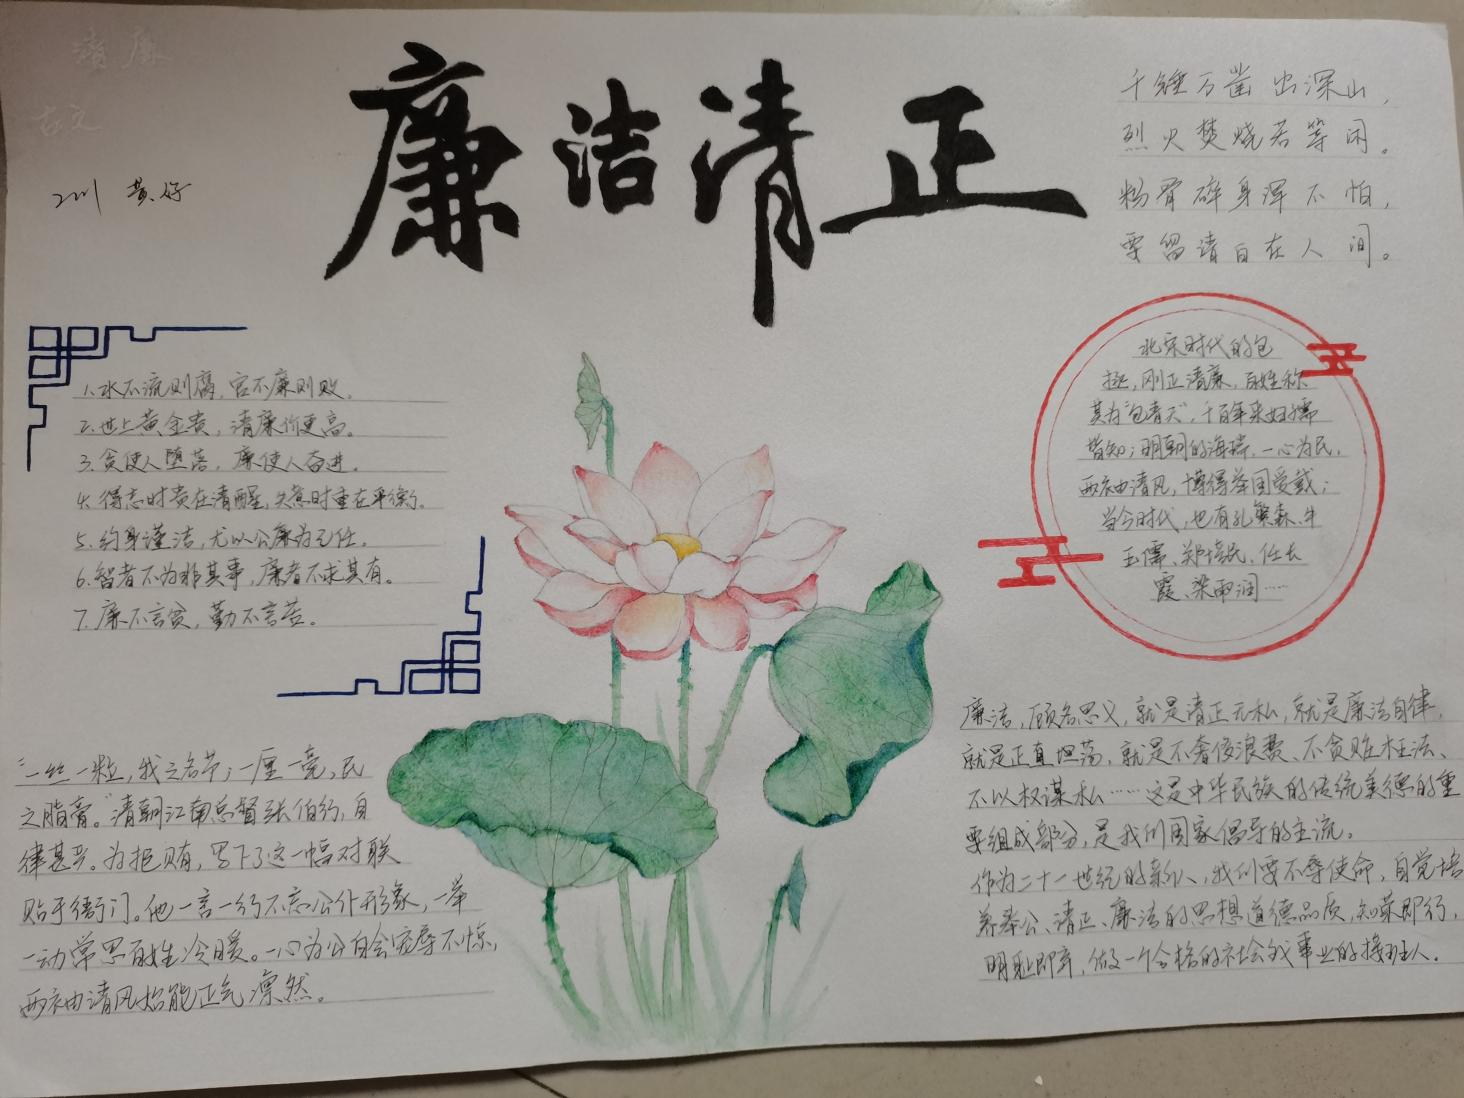 清廉
古文
廉洁清正
千锤万凿出深山，
烈火焚烧若等闲。
粉骨碎身浑不怕，
要留清白在人间。
1.水不流则腐，官不廉则败。
2.世上黄金贵，清廉价更高。
3.贪使人堕落，廉使人奋进。
4.得志时贵在清醒，失意时重在平衡。
5.约身谨洁，尤以公廉为己任。
6.智者不为非其事，廉者不求其有。
7.廉不言贫，勤不言苦。
北宋时代的包
拯，刚正清廉，百姓称
其为“包青天”，千百年来妇孺
皆知；明朝的海瑞，一心为民，
两袖清风，博得举国爱戴；
当今时代，也有孔繁森、牛
玉儒、郑培民、任长
霞、梁雨润……
“一丝一粒，我之名节；一厘一毫，民
之脂膏。”清朝江南总督张伯行，自
律甚严。为拒贿，写下了这一幅对联
贴于衙门。他一言一行不忘公仆形象，一举
一动常思百姓冷暖。一心为公自会宠辱不惊，
两袖清风始能正气凛然。
廉洁，顾名思义，就是清正无私，就是廉洁自律，
就是正直坦荡，就是不奢侈浪费、不贪赃枉法、
不以权谋私……这是中华民族的传统美德的重
要组成部分，是我们国家倡导的主流。
作为二十一世纪的新人，我们要不辱使命，自觉培
养奉公、清正、廉洁的思想道德品质，知荣即行，
明耻即弃，做一个合格的社会我事业的接班人。